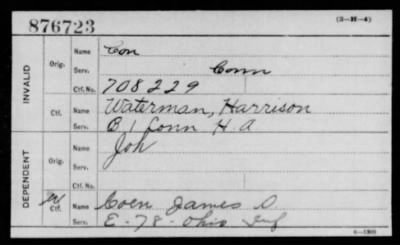 876723 (3-H-4)
Name Con
Orig. Serv. Conn
INVALID Ctf. No. 708229
Ctf. Name Waterman, Harrison
Serv. B, 1 Conn H A
Name Joh
Orig. Serv.
DEPENDENT Ctf. No.
Ctf. Name Coen James D
Serv. E-78-Ohio Inf